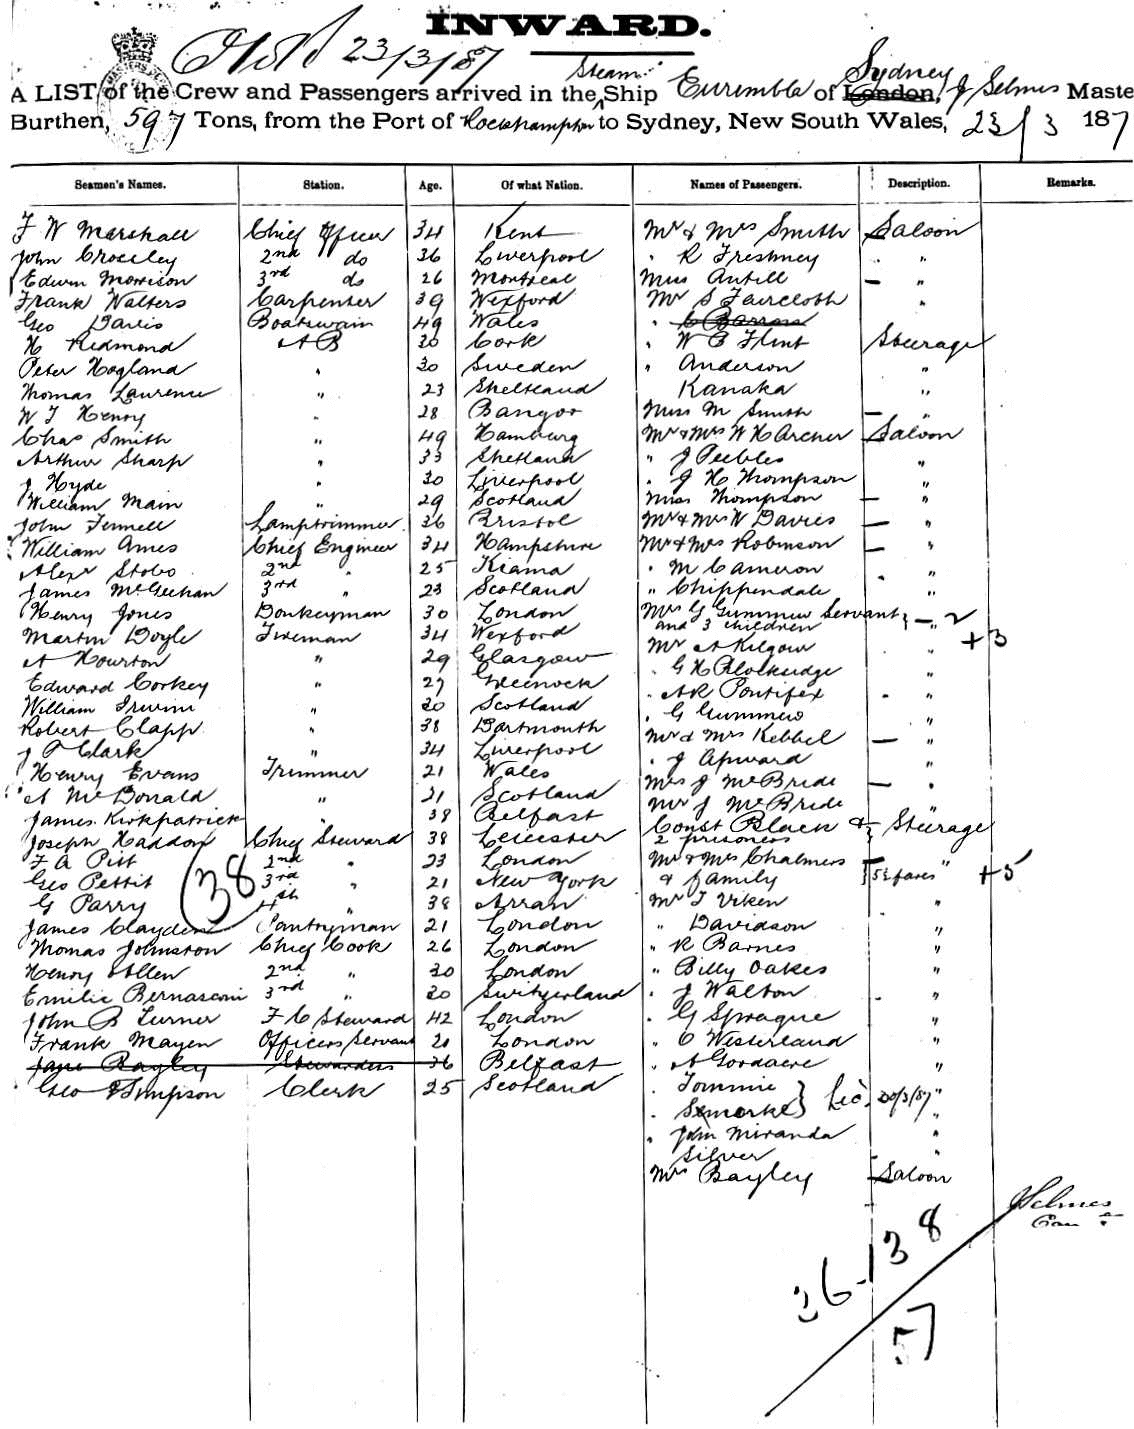 INWARD.
23/3/87
Steam
Sydney
A LIST of the Crew and Passengers arrived in the Ship Eurimbla of London, J Selmes Maste
Burthen, 597 Tons, from the Port of Rockhampton to Sydney, New South Wales, 23/3 187
Seamen's Names. Station. Age. Of what Nation. Names of Passengers. Description. Remarks.
F W Marshall Chief Officer 34 Kent Mr & Mrs Smith Saloon
John Crossley 2nd do 36 Liverpool " R Freshney "
Edwin Morrison 3rd do 26 Montreal Miss Antill "
Frank Walters Carpenter 39 Wexford Mr S Faircloth "
Geo Davis Boatswain 49 Wales " C Barrow
H Redmond A B 30 Cork " W E Flint Steerage
Peter Hogland " 30 Sweden " Anderson "
Thomas Laurence " 23 Shetland Kanaka "
W J Henry " 28 Bangor Miss M Smith "
Chas Smith " 49 Hamburg Mr & Mrs W H Archer Saloon
Arthur Sharp " 33 Shetland " J Peebles "
J Hyde " 30 Liverpool " J H Thompson "
William Main " 29 Scotland Miss Thompson "
John Fennell Lamptrimmer 36 Bristol Mr & Mrs W Davies "
William Ames Chief Engineer 34 Hampshire Mr & Mrs Robinson "
Alexr Stobo 2nd " 25 Kiama " M Cameron "
James McGeehan 3rd " 23 Scotland " Chippendale "
Henry Jones Donkeyman 30 London Mrs G Gummow Servant } " 2
and 3 children
Martin Doyle Fireman 34 Wexford Mr A Kilgour " +3
A Hourton " 29 Glasgow " G H Blockridge "
Edward Corkey " 27 Greenock " A R Pontifex "
William Irwin " 30 Scotland " G Gummow "
Robert Clapp " 38 Dartmouth Mr & Mrs Kebbel "
J F Clark " 34 Liverpool " J Upward "
Henry Evans Trimmer 21 Wales Mrs J McBride "
A McDonald " 21 Scotland Mr J McBride "
James Kirkpatrick " 38 Belfast Const Black & } Steerage
2 prisoners
Joseph Haddon Chief Steward 38 Leicester
F A Pitt 2nd " 23 London Mr & Mrs Chalmers "
Geo Pettit 3rd " 21 New York & family } 5½ fares +5
(38
G Parry 4th " 38 Arran Mr T Viken "
James Clayden Pantryman 21 London " Davidson "
Thomas Johnston Chief Cook 26 London " R Barnes "
Henry Allen 2nd " 30 London " Billy Oakes "
Emilie Bernasconi 3rd " 30 Switzerland " J Walton "
John B Turner F C Steward 42 London " G Sprague "
Frank Mayen Officers Servant 21 London " C Westerland "
Jane Bayley Stewardess 36 Belfast " A Gordacre "
Geo Simpson Clerk 25 Scotland " Tommie } Lic. 20/3/87 "
" }
" John Miranda "
Silver "
Mrs Bayley Saloon
J Selmes
36-138
57